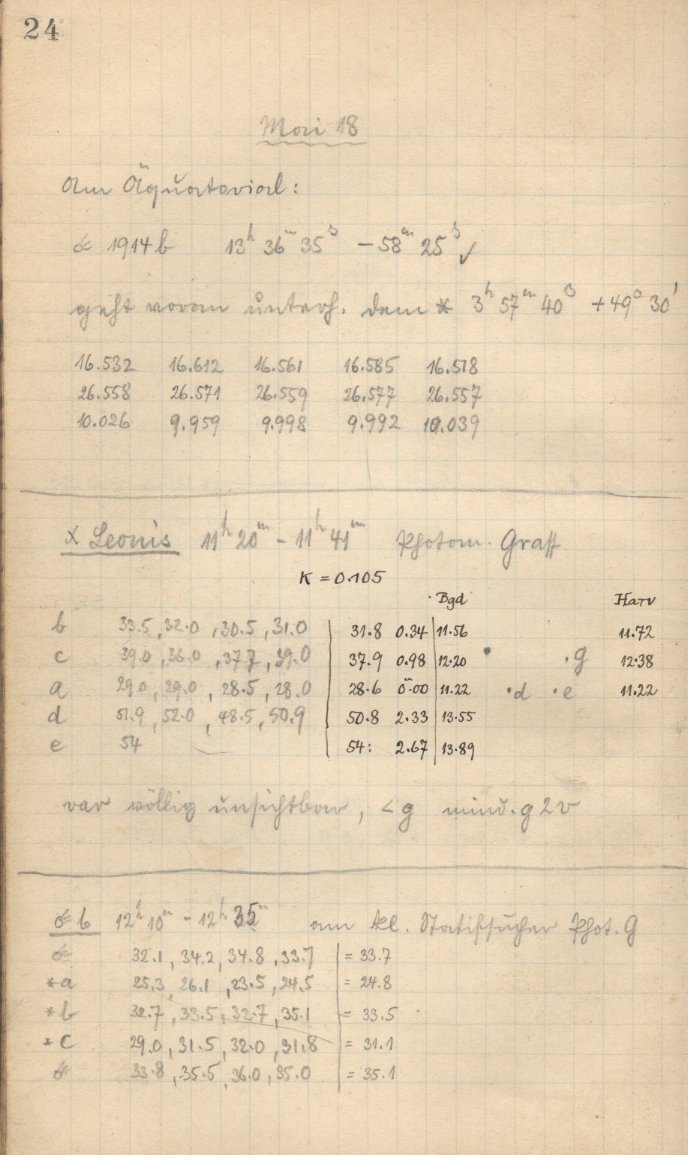 24
Mai 18
Am Äquatorial:
☄ 1914 b 13ʰ 36ᵐ 35ˢ −58ᵐ 25ˢ ✓
geht voran unterh. dem * 3ʰ 57ᵐ 40ˢ +49° 30'
16.532 16.612 16.561 16.585 16.518
26.558 26.571 26.559 26.577 26.557
10.026 9.959 9.998 9.992 10.039
X Leonis 11ʰ 20ᵐ - 11ʰ 41ᵐ Photom. Graff
K = 0.105
Bgd Harv
b 33.5, 32.0, 30.5, 31.0 31.8 0.34 11.56 11.72
c 39.0, 36.0, 37.7, 39.0 37.9 0.98 12.20 · · g 12.38
a 29.0, 29.0, 28.5, 28.0 28.6 0.00 11.22 · d · e 11.22
d 51.9, 52.0, 48.5, 50.9 50.8 2.33 13.55
e 54 54: 2.67 13.89
var völlig unsichtbar, < g mind. g 2 v
☄ b 12ʰ 10ᵐ - 12ʰ 35ᵐ am kl. Statifsucher Phot. G
☄ 32.1, 34.2, 34.8, 33.7 = 33.7
*a 25.3, 26.1, 23.5, 24.5 = 24.8
*b 32.7, 33.5, 32.7, 35.1 = 33.5
*c 29.0, 31.5, 32.0, 31.8 = 31.1
☄ 33.8, 35.5, 36.0, 35.0 = 35.1